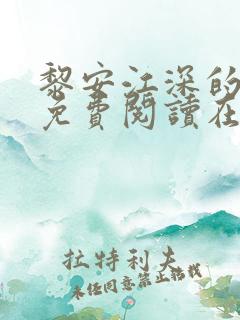 黎安江深的
免費閱讀在
拉特利夫
未经同意禁止转载